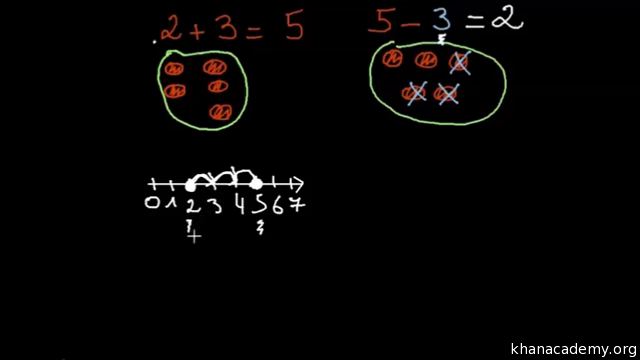 2 + 3 = 5
5 - 3 = 2
0 1 2 3 4 5 6 7
khanacademy.org